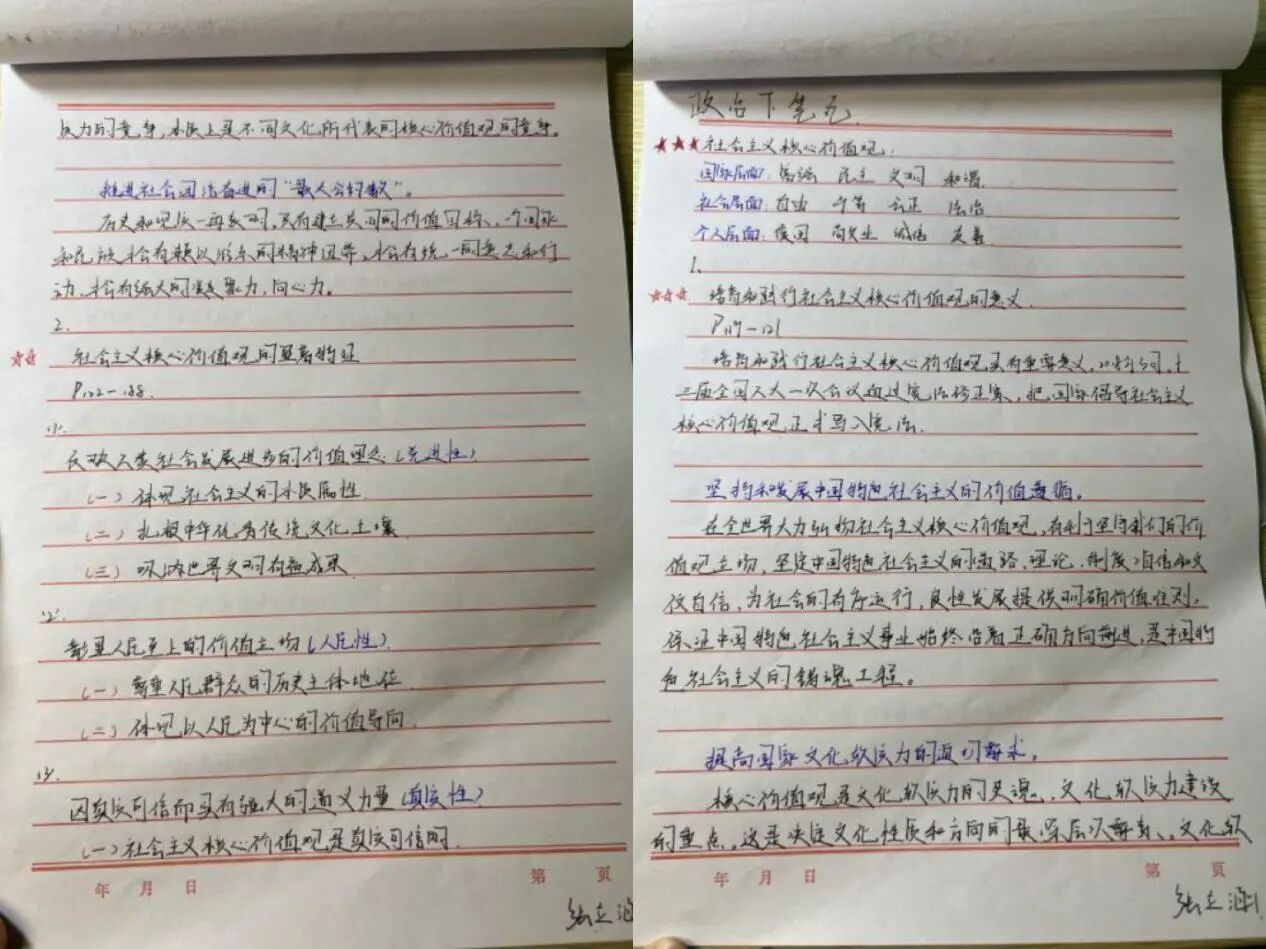 实力的竞争,本质上是不同文化所代表的核心价值观的竞争。
推进社会团结奋进的“最大公约数”。
历史和现实一再表明,只有建立共同的价值目标,一个国家
和民族才会有赖以维系的精神纽带,才会有统一的意志和行
动,才会有强大的凝聚力,向心力。
2.
★★ 社会主义核心价值观的显著特征
P122-128.
(1).
反映人类社会发展进步的价值理念(先进性)
(一)体现社会主义的本质属性
(二)扎根中华优秀传统文化土壤
(三)吸纳世界文明有益成果
(2).
彰显人民至上的价值立场(人民性)
(一)尊重人民群众的历史主体地位
(二)体现以人民为中心的价值导向
(3).
因真实可信而具有强大的道义力量(真实性)
(一)社会主义核心价值观是真实可信的
年 月 日 第 页
张立涵
政治下笔记
★★★社会主义核心价值观:
国家层面:富强 民主 文明 和谐
社会层面:自由 平等 公正 法治
个人层面:爱国 敬业 诚信 友善
1.
★★★ 培育和践行社会主义核心价值观的意义
P119-121
培育和践行社会主义核心价值观具有重要意义,2018年3月,十
三届全国人大一次会议通过宪法修正案,把国家倡导社会主义
核心价值观正式写入宪法.
坚持和发展中国特色社会主义的价值遵循。
在全世界大力弘扬社会主义核心价值观,有利于坚守我们的价
值观立场,坚定中国特色社会主义的道路、理论、制度自信和文
化自信,为社会的有序运行,良性发展提供明确价值准则,
保证中国特色社会主义事业始终沿着正确方向前进,是中国特
色社会主义的铸魂工程。
提高国家文化软实力的迫切要求。
核心价值观是文化软实力的灵魂,文化软实力建设
的重点。这是决定文化性质和方向的最深层次要素、文化软
年 月 日 第 页
张立涵